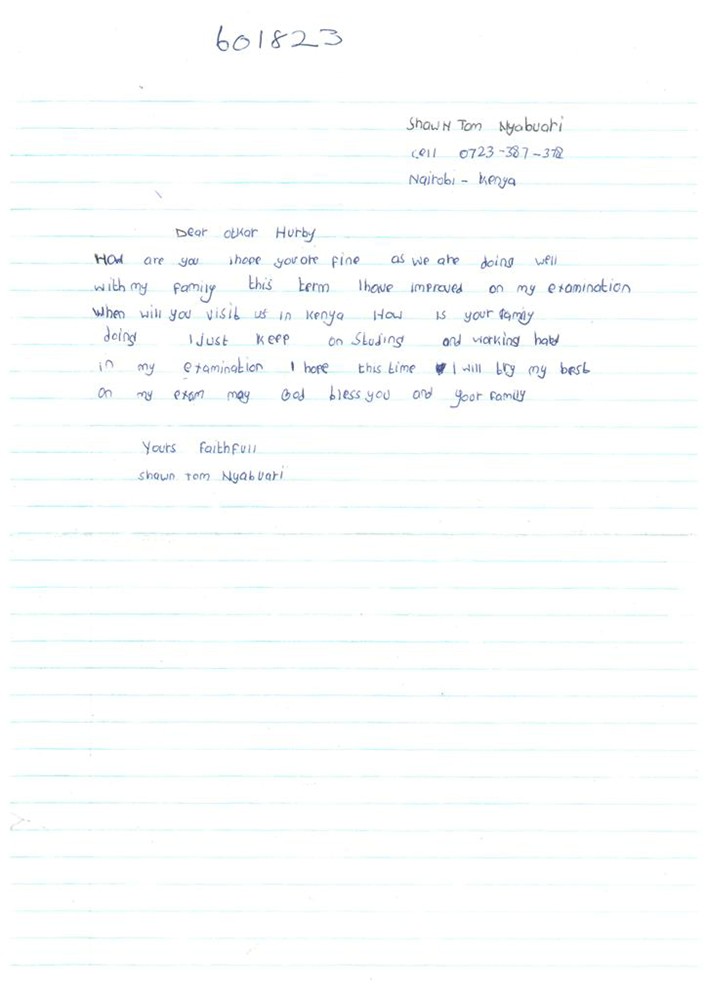 601823
Shawn Tom Nyabuari
cell 0723-387-378
Nairobi - Kenya
Dear otkar Hurby
How are you ihope youare fine as we are doing well
with my family this term Ihave improved on my examination
When will you visit us in Kenya How is your family
doing I just keep on Studing and working hard
in my examination I hope this time I will try my best
on my exam may God bless you and your family
Yours faithfull
Shawn Tom Nyabuari